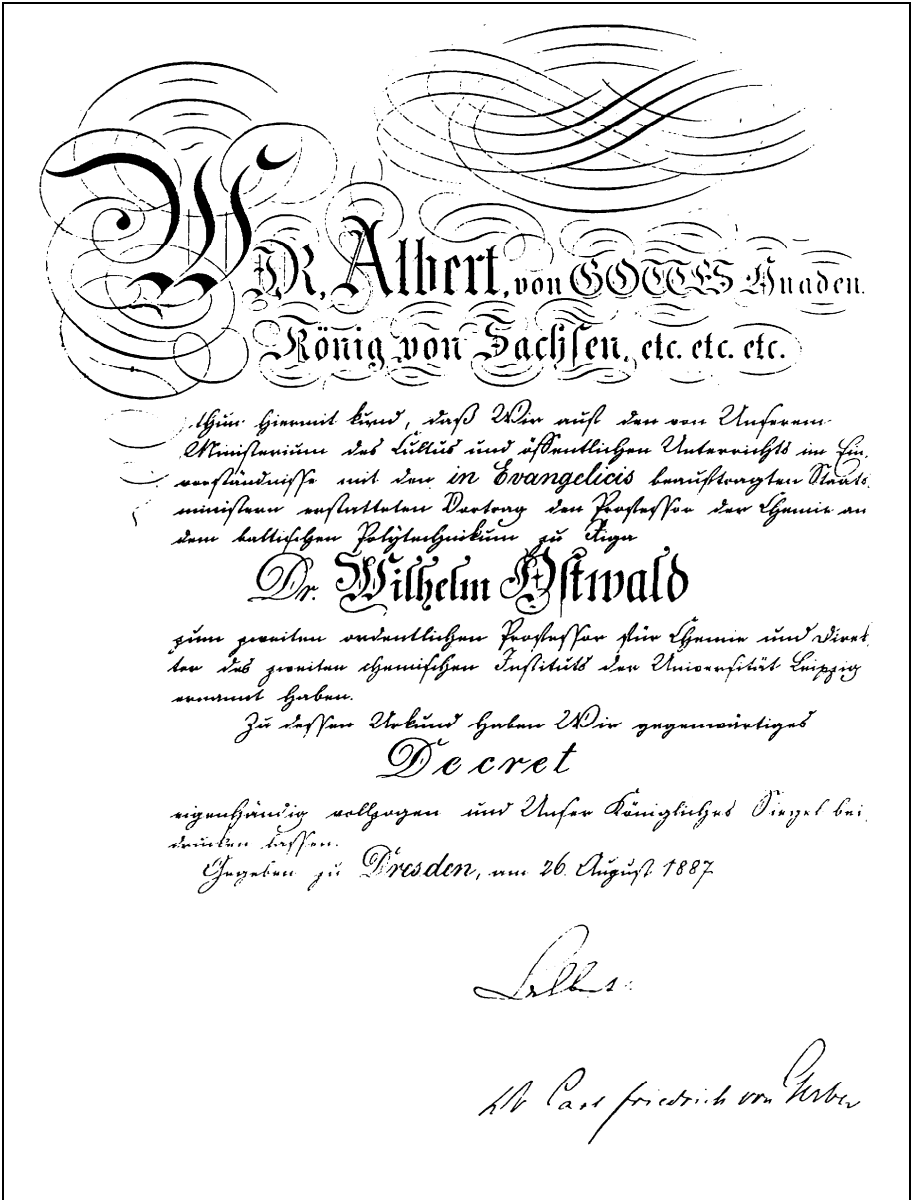 WIR, Albert, von GOTTES Gnaden.
König von Sachsen, etc. etc. etc.
thun hiermit kund, daß Wir auf den von Unserem
Ministerium des Cultus und öffentlichen Unterrichts im Ein-
verständnisse mit den in Evangelicis beauftragten Staats-
ministern erstatteten Vortrag den Professor der Chemie an
dem baltischen Polytechnikum zu Riga
Dr. Wilhelm Ostwald
zum zweiten ordentlichen Professor für Chemie und Direk-
tor des zweiten chemischen Instituts der Universität Leipzig
ernannt haben.
Zu dessen Urkund haben Wir gegenwärtiges
Decret
eigenhändig vollzogen und Unser Königliches Siegel bei-
drucken lassen.
Gegeben zu Dresden, am 26. August 1887
Albert
Dr Carl Friedrich von Gerber